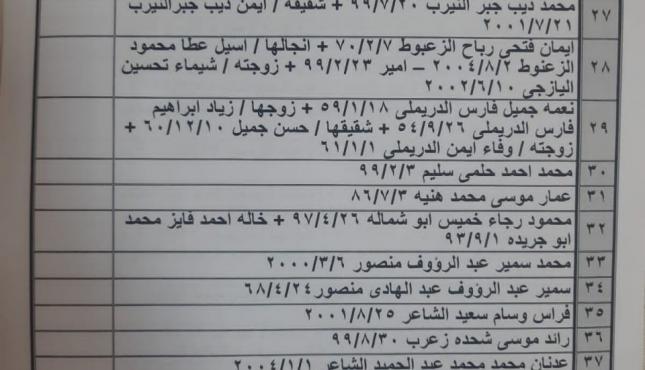 ٢٧ محمد ديب جبر النيرب ٩٩/٧/٢٠ + شقيقه / ايمن ديب جبر النيرب
٢٠٠١/٧/٢١
ايمان فتحي رباح الزعبوط ٧٠/٢/٧ + انجالها / اسيل عطا محمود
٢٨ الزعنوط ٢٠٠٤/٨/٢ – امير ٩٩/٢/٢٣ + زوجته / شيماء تحسين
اليازجي ٢٠٠٢/٦/١٠
نعمه جميل فارس الدريملي ٥٩/١/١٨ + زوجها / زياد ابراهيم
٢٩ فارس الدريملي ٥٤/٩/٢٦ + شقيقها / حسن جميل ٦٠/١٢/١٠ +
زوجته / وفاء ايمن الدريملي ٦١/١/١
٣٠ محمد احمد حلمي سليم ٩٩/٢/٣
٣١ عمار موسى محمد هنيه ٨٦/٧/٣
٣٢ محمود رجاء خميس ابو شماله ٩٧/٤/٢٦ + خاله احمد فايز محمد
ابو جريده ٩٣/٩/١
٣٣ محمد سمير عبد الرؤوف منصور ٢٠٠٠/٣/٦
٣٤ سمير عبد الرؤوف عبد الهادي منصور ٦٨/٤/٢٤
٣٥ فراس وسام سعيد الشاعر ٢٠٠١/٨/٢٥
٣٦ رائد موسى شحده زعرب ٩٩/٨/٣٠
٣٧ عدنان محمد محمد عبد الحميد الشاعر ٢٠٠٤/١/١